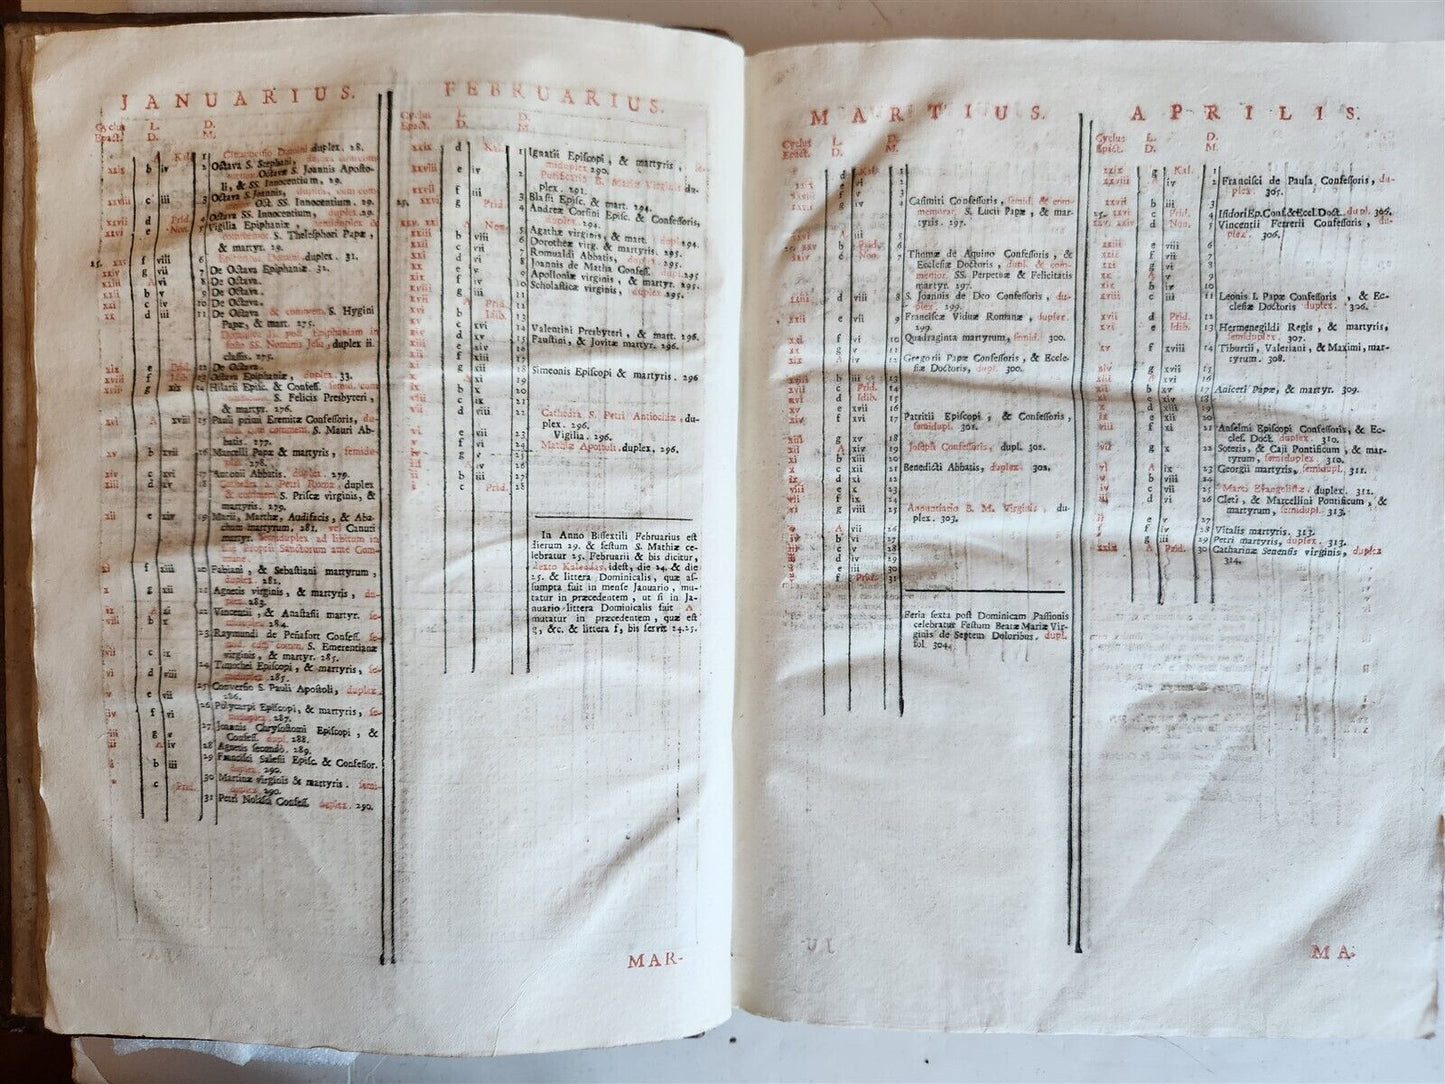 JANUARIUS.
Cyclus Epact. L. D. D. M.
Kal. 1 Circumcisio Domini duplex. 28.
xxix b iv 2 Octava S. Stephani,
Octava S. Joannis Aposto-
li, & SS. Innocentium. 29.
c iii 3 Octava S. Joannis,
Oct. SS. Innocentium. 29.
xxvii d Prid. 4 Octava SS. Innocentium, duplex. 29.
xxvi e Non. 5 Vigilia Epiphaniæ,
S. Thelesphori Papæ,
& martyr. 29.
25. xxv f viii 6 Epiphania Domini duplex. 31.
xxiv g vii 7 De Octava Epiphaniæ. 32.
A vi 8 De Octava.
xxii b v 9 De Octava.
c iv 10 De Octava.
xx d iii 11 De Octava & commem. S. Hygini
Papæ, & mart. 275.
Dominica II. post Epiphaniam
festo SS. Nominis Jesu, duplex ii.
classis. 275.
xix e Prid. 12 De Octava.
xviii f Idib. 13 Octava Epiphaniæ, duplex. 33.
g xix 14 Hilarii Episc. & Confess. semid. com.
S. Felicis Presbyteri,
& martyr. 276.
xvi A xviii 15 Pauli primi Eremitæ Confessoris, du-
plex cum comment. S. Mauri Ab-
batis. 277.
xv b xvii 16 Marcelli Papæ & martyris, semidu-
plex. 278.
c xvi 17 Antonii Abbatis. duplex. 279.
xiii d xv 18 Cathedra S. Petri Romæ, duplex
& commem. S. Priscæ virginis, &
martyris. 279.
xii e xiv 19 Marii, Marthæ, Audifacis, & Aba-
chum martyrum. 281. vel Canuti
martyr. semiduplex ad libitum in
Proprii Sanctorum ante Com-
mune.
xi f xiii 20 Fabiani, & Sebastiani martyrum,
duplex. 281.
x g xii 21 Agnetis virginis, & martyris, du-
plex. 283.
A xi 22 Vincentii, & Anastasii martyr. se-
284.
viii b x 23 Raymundi de Peñafort Confess. se-
mid. cum comm. S. Emerentianæ
virginis, & martyr. 285.
vii c ix
vi d viii 24 Timothei Episcopi, & martyris, se-
285.
v e vii 25 Conversio S. Pauli Apostoli, duplex.
286.
iv f vi 26 Polycarpi Episcopi, & martyris, se-
miduplex. 287.
iii g v 27 Joannis Chrysostomi Episcopi, &
Confess. dupl. 288.
ii A iv 28 Agnetis secundò. 289.
b iii 29 Francisci Salesii Episc. & Confessor.
duplex. 290.
c Prid. 30 Martinæ virginis & martyris. semi-
duplex. 290.
31 Petri Nolasci Confess. duplex. 290.
FEBRUARIUS.
Cyclus Epact. L. D. D. M.
xxix d Kal. 1 Ignatii Episcopi, & martyris, se-
miduplex 290.
xxviii e iv 2 Purificatio B. Mariæ Virginis du-
plex. 291.
xxvii f iii 3 Blasii Episc. & mart. 294.
25. xxvi g Prid. 4 Andreæ Corsini Episc. & Confessoris,
duplex. 294.
xxv. xxiv A Non. 5 Agathæ virginis, & mart. dupl. 294.
xxiii b viii 6 Dorotheæ virg. & martyris. 295.
xxii c vii 7 Romualdi Abbatis, duplex. 295.
d vi 8 Joannis de Matha Confess. duplex 295.
e v 9 Apolloniæ virginis, & martyr. 295.
f iv 10 Scholasticæ virginis, duplex 295.
g iii 11
A Prid. 12
b Idib. 13
c xvi 14 Valentini Presbyteri, & mart. 296.
d xv 15 Faustini, & Jovitæ martyr. 296.
e xiv 16
f xiii 17
g xii 18 Simeonis Episcopi & martyris. 296
A xi 19
b x 20
c ix 21
d viii 22 Cathedra S. Petri Antiochiæ, du-
plex. 296.
e vii 23 Vigilia. 296.
f vi 24 Mathiæ Apostoli. duplex, 296.
g v 25
A iv 26
b iii 27
c Prid. 28
In Anno Bissextili Februarius est
dierum 29. & festum S. Mathiæ ce-
lebratur 25. Februarii & bis dicitur,
sexto Kalendas, idest, die 24. & die
25. & littera Dominicalis, quæ as-
sumpta fuit in mense Januario, mu-
tatur in præcedentem, ut si in Ja-
nuario littera Dominicalis fuit A
mutatur in præcedentem, quæ est
g, &c. & littera f, bis servit 24.25.
MAR-
MARTIUS.
Cyclus Epact. L. D. D. M.
d Kal. 1
e vi 2
f v 3
g iv 4 Casimiri Confessoris, semid. & com-
memorat. S. Lucii Papæ, & mar-
tyris. 297.
A iii 5
b Prid. 6
c Non. 7 Thomæ de Aquino Confessoris, &
Ecclesiæ Doctoris, dupl. & com-
memor. SS. Perpetuæ & Felicitatis
martyr. 297.
xxiii d viii 8 S. Joannis de Deo Confessoris, du-
plex. 299.
xxii e vii 9 Franciscæ Viduæ Romanæ, duplex.
299.
xxi f vi 10 Quadraginta martyrum, semid. 300.
xx g v 11
xix A iv 12 Gregorii Papæ Confessoris, & Eccle-
siæ Doctoris, dupl. 300.
xviii b iii 13
xvii c Prid. 14
xvi d Idib. 15
xv e xvii 16
f xvi 17 Patritii Episcopi, & Confessoris,
semidupl. 302.
g xv 18
A xiv 19 Joseph Confessoris, dupl. 302.
b xiii 20
c xii 21 Benedicti Abbatis, duplex. 302.
d xi 22
e x 23
f ix 24
g viii 25 Annuntiatio B. M. Virginis, du-
plex. 303.
A vii 26
b vi 27
c v 28
d iv 29
e iii 30
f Prid. 31
Feria sexta post Dominicam Passionis
celebratur Festum Beatæ Mariæ Vir-
ginis de Septem Doloribus. dupl.
fol. 304.
APRILIS.
Cyclus Epact. L. D. D. M.
xxix g Kal. 1
xxviii A iv 2 Francisci de Paula Confessoris, du-
plex. 305.
xxvii b iii 3
25. xxvi c Prid. 4 Isidori Ep. Conf. & Eccl. Doct. dupl. 306.
xxv. xxiv d Non. 5 Vincentii Ferrerii Confessoris, du-
plex. 306.
xxiii e viii 6
xxii f vii 7
g vi 8
A v 9
b iv 10
xviii c iii 11 Leonis I. Papæ Confessoris, & Ec-
clesiæ Doctoris duplex. 306.
xvii d Prid. 12
xvi e Idib. 13 Hermenegildi Regis, & martyris,
semiduplex. 307.
xv f xviii 14 Tiburtii, Valeriani, & Maximi, mar-
tyrum. 308.
xiv g xvii 15
A xvi 16
b xv 17 Aniceti Papæ, & martyr. 309.
c xiv 18
d xiii 19
e xii 20
f xi 21 Anselmi Episcopi Confessoris, & Ec-
cles. Doct. duplex. 310.
vii g x 22 Soteris, & Caji Pontificum, & mar-
tyrum, semiduplex. 310.
vi A ix 23 Georgii martyris, semidupl. 311.
b viii 24
c vii 25 Marci Evangelistæ, duplex. 312.
iii d vi 26 Cleti, & Marcellini Pontificum, &
martyrum, semidupl. 313.
e v 27
f iv 28 Vitalis martyris. 313.
g iii 29 Petri martyris, duplex. 313.
xxix A Prid. 30 Catharinæ Senensis virginis, duplex
314.
MA.